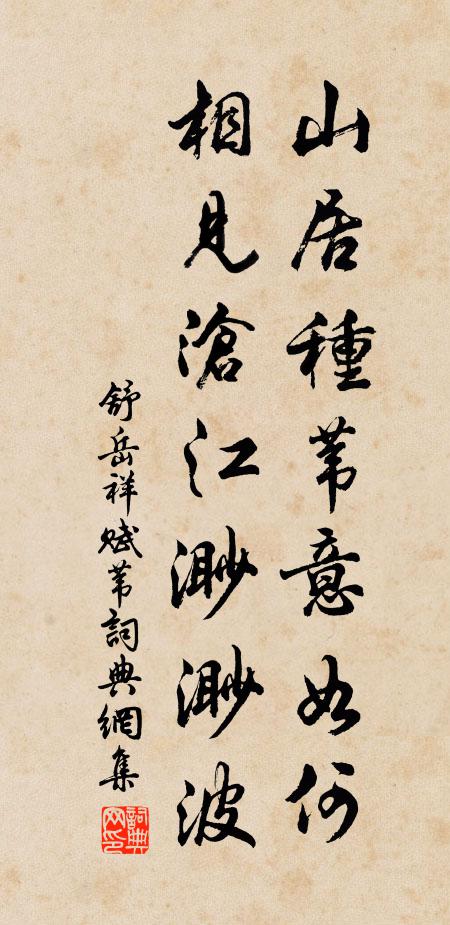 山居種苇意如何
相見滄江渺渺波
舒岳祥賦苇詞典網集
詞典网印